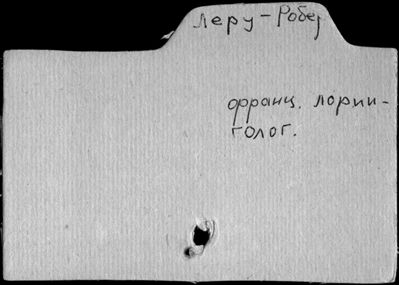 Леру-Робер
франц. ларин-
голог.